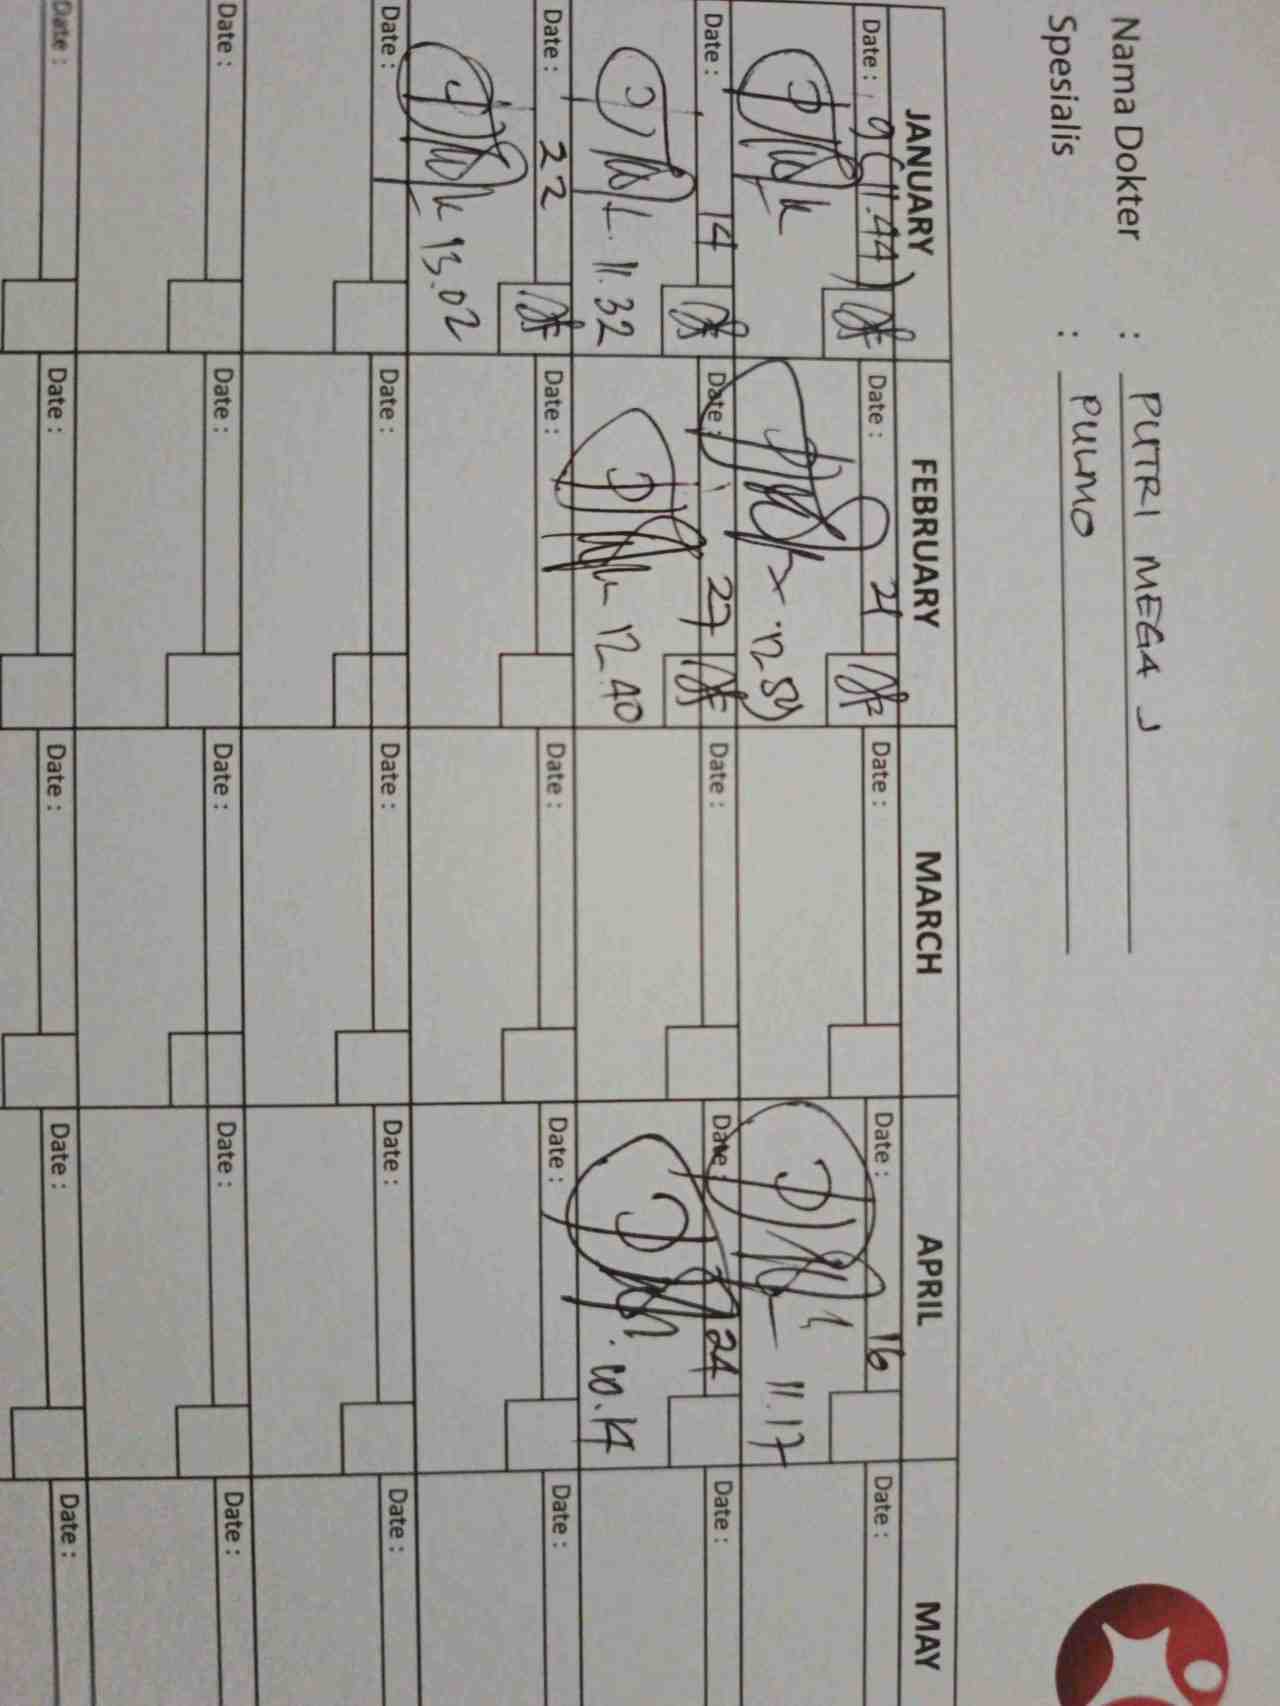 Nama Dokter : PUTRI MEGA J
Spesialis : PULMO
JANUARY FEBRUARY MARCH APRIL MAY
Date : 9 (11.44) Date : 21 Date : Date : 16 Date :
12.59 11.17
Date : 14 Date : 27 Date : Date : 24 Date :
11.32 12.40 10.14
Date : 22 Date : Date : Date : Date :
13.02
Date : Date : Date : Date : Date :
Date : Date : Date : Date : Date :
Date : Date : Date : Date : Date :